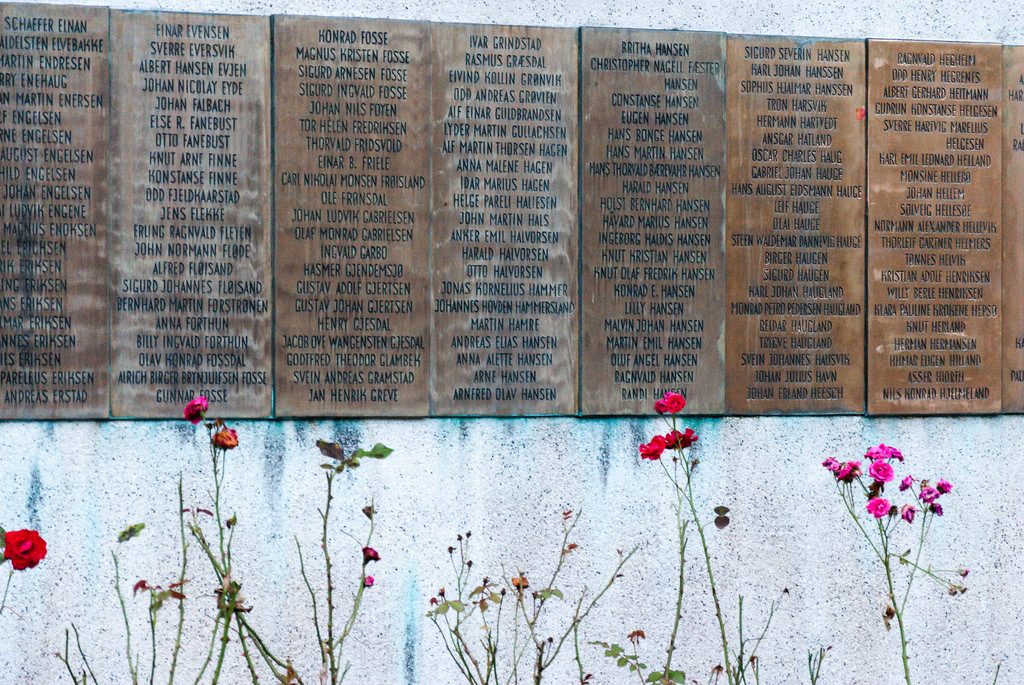 SCHAEFER ELNAN
ALDELSTEN ELVEBAKKE
MARTIN ENDRESEN
RRY ENEHAUG
AN MARTIN ENERSEN
LF ENGELSEN
RNE ENGELSEN
AUGUST ENGELSEN
HILD ENGELSEN
JOHAN ENGELSEN
AI LUDVIK ENGENE
MAGNUS ENOKSEN
EL ERICHSEN
RIK ERIKSEN
LING ERIKSEN
ANS ERIKSEN
LMAR ERIKSEN
NILS ERIKSEN
PARELIUS ERIKSEN
ANDREAS ERSTAD
EINAR EVENSEN
SVERRE EVERSVIK
ALBERT HANSEN EVJEN
JOHAN NICOLAY EYDE
JOHAN FALBACH
ELSE R. FANEBUST
OTTO FANEBUST
KNUT ARNE FINNE
KONSTANSE FINNE
ODD FJELDKAARSTAD
JENS FLEKKE
ERLING RAGNVALD FLETEN
JOHN NORMANN FLØDE
ALFRED FLØISAND
SIGURD JOHANNES FLØISAND
BERNHARD MARTIN FORSTRØNEN
ANNA FORTHUN
BILLY INGVALD FORTHUN
OLAV KONRAD FOSSDAL
ALRICH BIRGER BRYNJULFSEN FOSSE
GUNNAR FOSSE
KONRAD FOSSE
MAGNUS KRISTEN FOSSE
SIGURD ARNESEN FOSSE
SIGURD INGVALD FOSSE
JOHAN NILS FOYEN
TOR HELEN FREDRIKSEN
THORVALD FRIDSVOLD
EINAR B. FRIELE
CARL NIKOLAI MONSEN FRØISLAND
OLE FRØNSDAL
JOHAN LUDVIK GABRIELSEN
OLAF MONRAD GABRIELSEN
INGVALD GARBO
KASMER GJENDEMSJØ
GUSTAV ADOLF GJERTSEN
GUSTAV JOHAN GJERTSEN
HENRY GJESDAL
JACOB OVE WANGENSTEN GJESDAL
GODTFRED THEODOR GLAMBEK
SVEIN ANDREAS GRAMSTAD
JAN HENRIK GREVE
IVAR GRINDSTAD
RASMUS GRÆSDAL
EIVIND KOLLIN GRØNVIK
ODD ANDREAS GRØVEN
ALF EINAR GULDBRANDSEN
LYDER MARTIN GULLACHSEN
ALF MARTIN THORSEN HAGEN
ANNA MALENE HAGEN
IDAR MARIUS HAGEN
HELGE PARELI HALJESEN
JOHN MARTIN HALS
ANKER EMIL HALVORSEN
HARALD HALVORSEN
OTTO HALVORSEN
JONAS KORNELIUS HAMMER
JOHANNES HOVDEN HAMMERSLAND
MARTIN HAMRE
ANDREAS ELIAS HANSEN
ANNA ALETTE HANSEN
ARNE HANSEN
ARNFRED OLAV HANSEN
BRITHA HANSEN
CHRISTOPHER NAGELL FÆSTER
HANSEN
CONSTANSE HANSEN
EUGEN HANSEN
HANS RONGE HANSEN
HANS MARTIN HANSEN
HANS THORVALD BAREVAHR HANSEN
HARALD HANSEN
HOLST BERNHARD HANSEN
HÅVARD MARIUS HANSEN
INGEBORG HALDIS HANSEN
KNUT KRISTIAN HANSEN
KNUT OLAF FREDRIK HANSEN
KONRAD E. HANSEN
LILLY HANSEN
MALVIN JOHAN HANSEN
MARTIN EMIL HANSEN
OLUF ANGEL HANSEN
RAGNVALD HANSEN
RANDI HANSEN
SIGURD SEVERIN HANSEN
KARL JOHAN HANSSEN
SOPHUS HJALMAR HANSSEN
TRON HARSVIK
HERMANN HARTVEDT
ANSGAR HATLAND
OSCAR CHARLES HAUG
GABRIEL JOHAN HAUGE
HANS AUGUST EIDSMANN HAUGE
LEIF HAUGE
OLAI HAUGE
STEEN WALDEMAR DANNEVIG HAUGE
BIRGER HAUGEN
SIGURD HAUGEN
KARL JOHAN HAUGLAND
MONRAD PETRO PEDERSEN HAUGLAND
REIDAR HAUGLAND
TRYGVE HAUGLAND
SVEIN JOHANNES HAUSVIK
JOHAN JULIUS HAVN
JOHAN ERLAND HEESCH
RAGNVALD HEGHEIM
ODD HENRY HEGRENES
ALBERT GERHARD HEITMANN
GUDRUN KONSTANSE HELGESEN
SVERRE HARTVIG MARELIUS
HELGESEN
KARL EMIL LEONARD HELLAND
MONSINE HELLERØ
JOHAN HELLEM
SOLVEIG HELLESØE
NORMANN ALEXANDER HELLEVIK
THORLEIF GARTNER HELMERS
TØNNES HELVIK
KRISTIAN ADOLF HENRIKSEN
WILLY BERLE HENRIKSEN
KLARA PAULINE KROKENE HEPSØ
KNUT HERLAND
HERMAN HERMANSEN
HILMAR EUGEN HILLAND
ASSER HJORTH
NILS KONRAD HJELMELAND